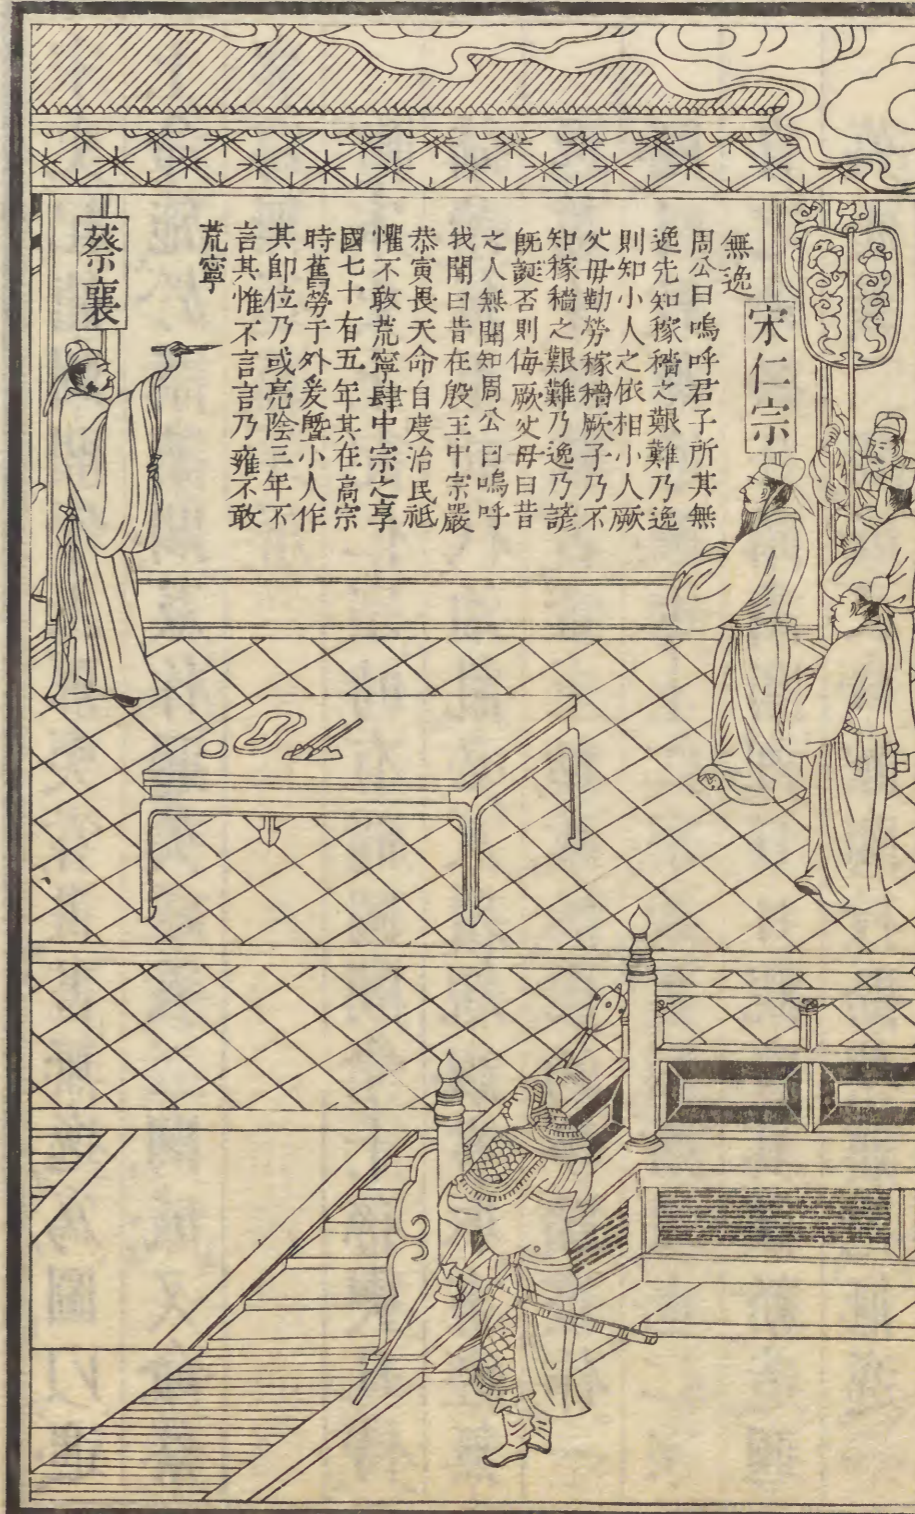 宋仁宗
無逸
周公曰嗚呼君子所其無
逸先知稼穡之艱難乃逸
則知小人之依相小人厥
父母勤勞稼穡厥子乃不
知稼穡之艱難乃逸乃諺
既誕否則侮厥父母曰昔
之人無聞知周公曰嗚呼
我聞曰昔在殷王中宗嚴
恭寅畏天命自度治民祗
懼不敢荒寧肆中宗之享
國七十有五年其在高宗
時舊勞于外爰曁小人作
其卽位乃或亮陰三年不
言其惟不言言乃雍不敢
荒寧
蔡襄